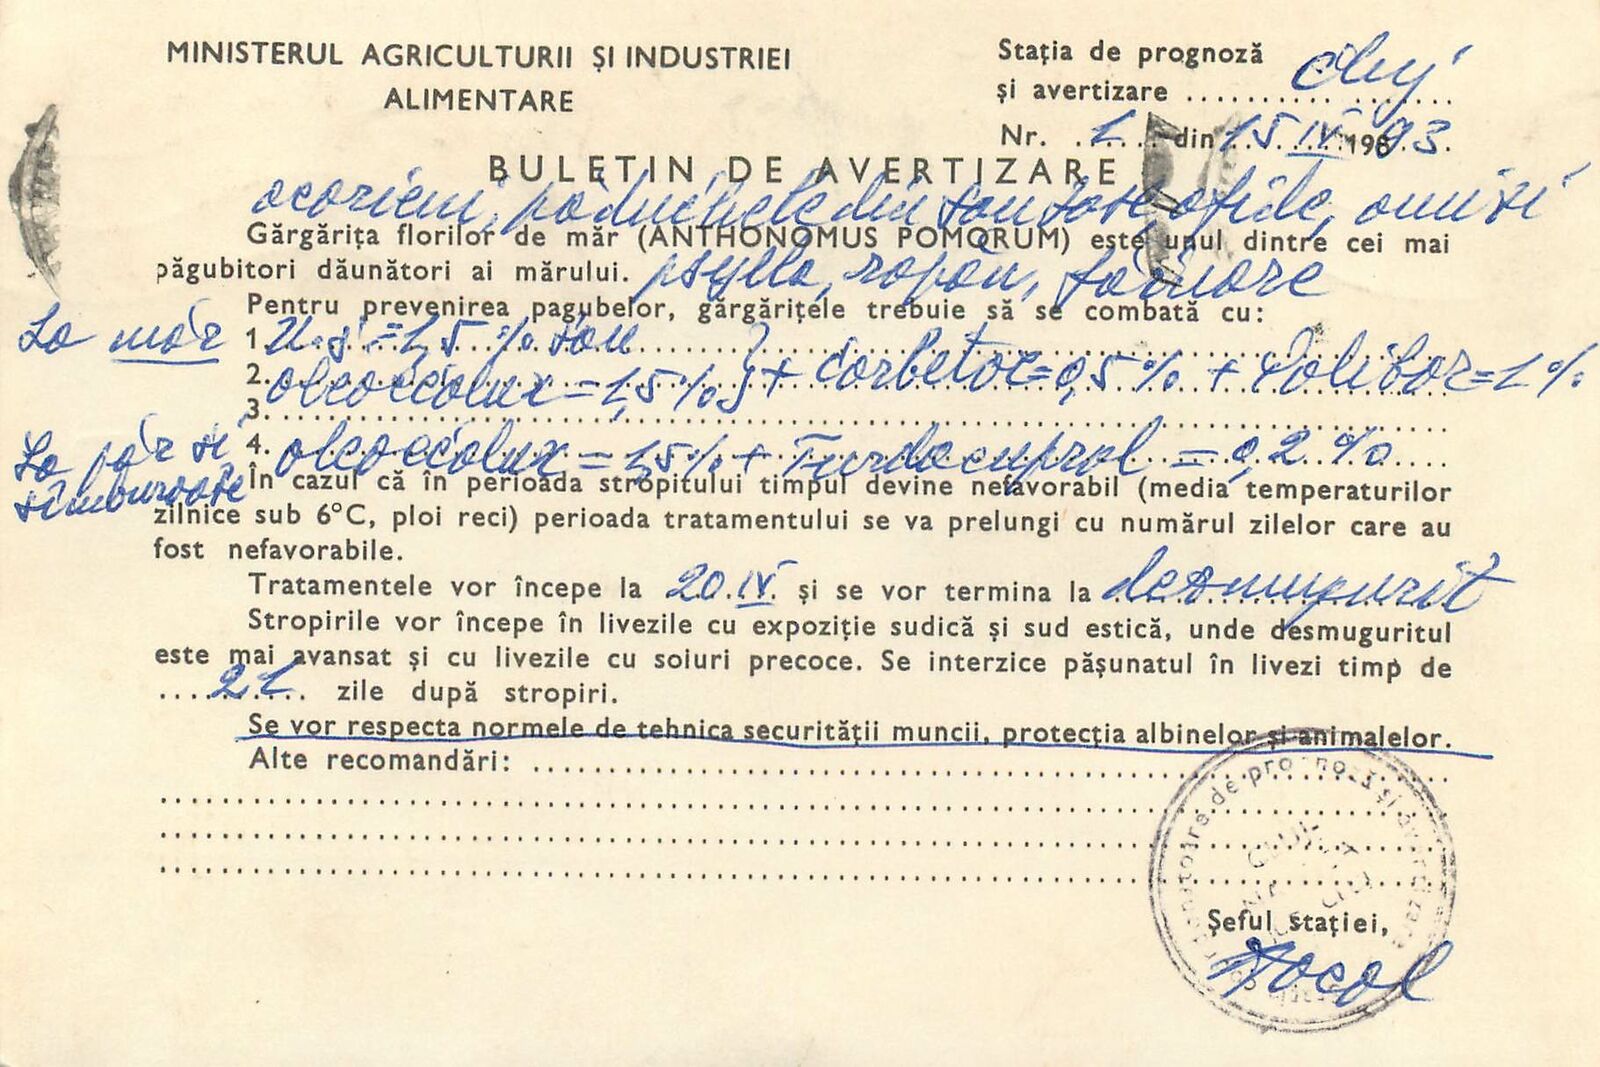 MINISTERUL AGRICULTURII ȘI INDUSTRIEI
ALIMENTARE
Stația de prognoză
și avertizare Cluj
Nr. 1 din 15 IV 1983.
BULETIN DE AVERTIZARE
acarieni, păduchele din San Jose, afide, omizi
Gărgărița florilor de măr (ANTHONOMUS POMORUM) este unul dintre cei mai
păgubitori dăunători ai mărului. psylla, rapăn, făinare
Pentru prevenirea pagubelor, gărgărițele trebuie să se combată cu:
La măr 1. = 1,5% sau
2. oleoecolux = 1,5% } + Carbetox = 0,5% + Polibar = 1%
3.
La păr și sîmburoase 4. oleoecolux = 1,5% + Turdacuprol = 0,2%
În cazul că în perioada stropitului timpul devine nefavorabil (media temperaturilor
zilnice sub 6°C, ploi reci) perioada tratamentului se va prelungi cu numărul zilelor care au
fost nefavorabile.
Tratamentele vor începe la 20.IV. și se vor termina la
Stropirile vor începe în livezile cu expoziție sudică și sud estică, unde desmuguritul
este mai avansat și cu livezile cu soiuri precoce. Se interzice pășunatul în livezi timp de
21 zile după stropiri.
Se vor respecta normele de tehnica securității muncii, protecția albinelor și animalelor.
Alte recomandări:
Șeful stației,